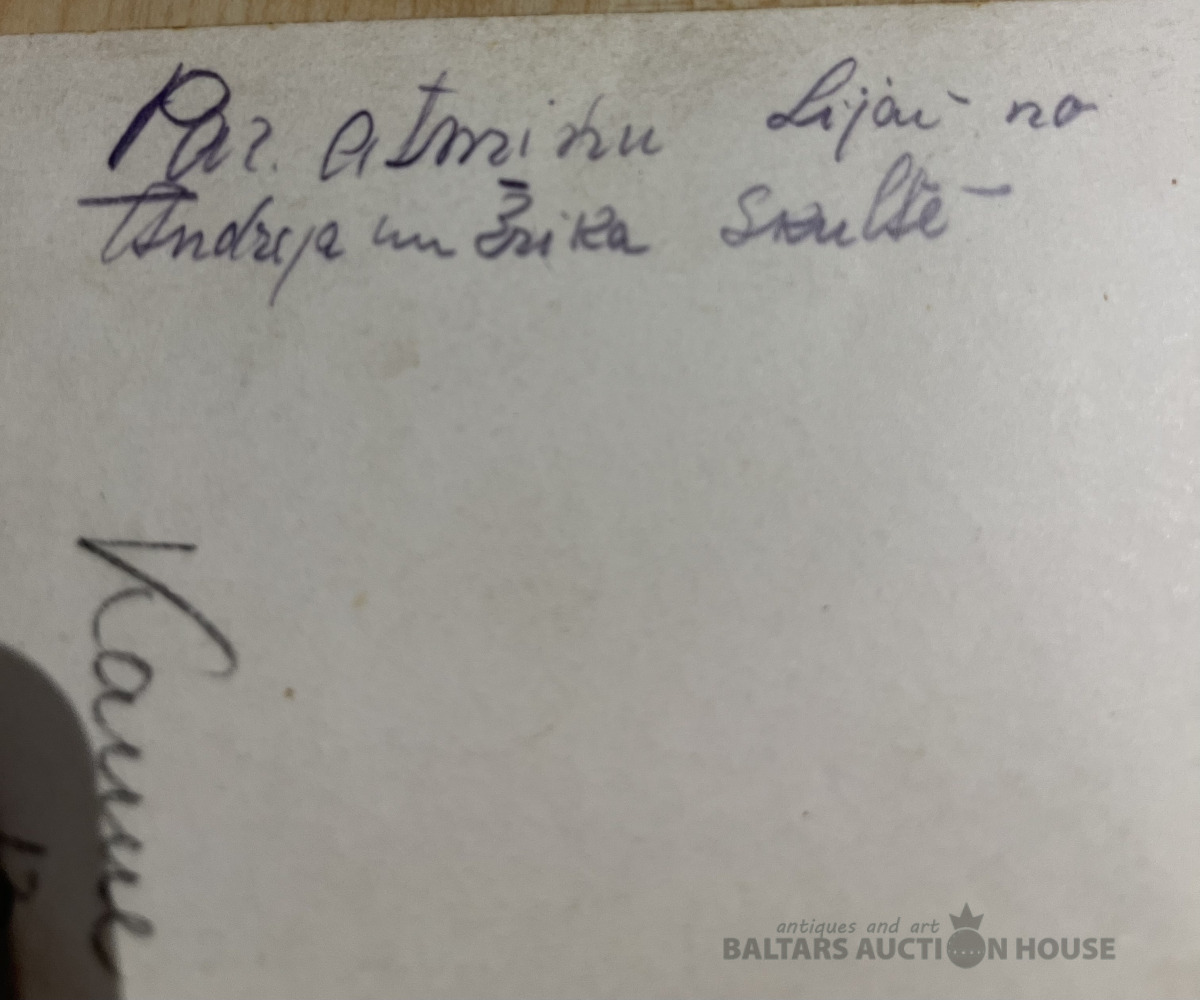 Par. atmiņu Lijai no
Andreja un Ērika Skultē
antiques and art
BALTARS AUCTION HOUSE